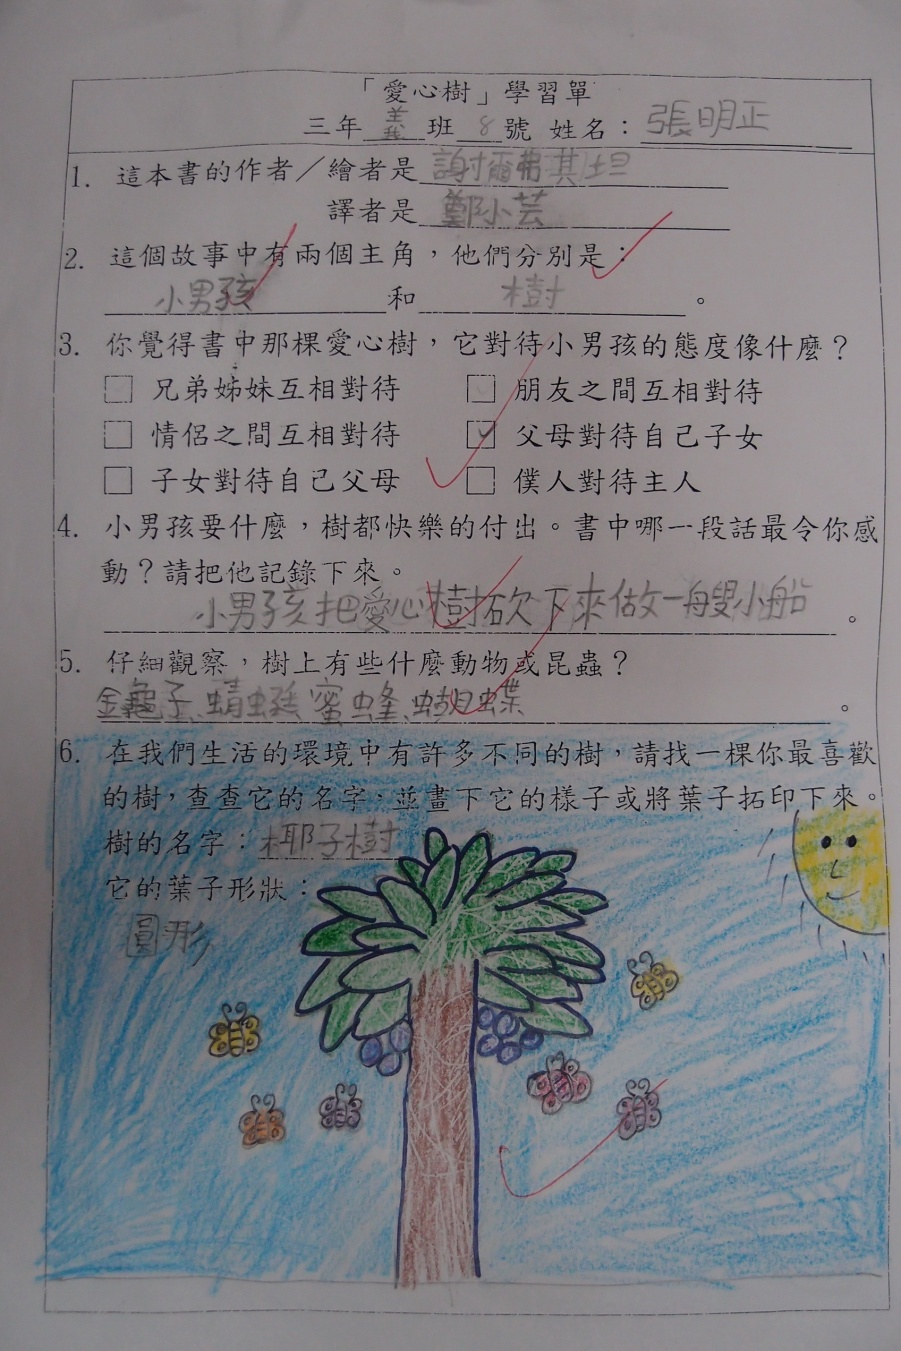 「愛心樹」學習單
三年 義 班 8 號 姓名：張明正
1. 這本書的作者／繪者是 謝爾弗其坦
譯者是 鄭小芸
2. 這個故事中有兩個主角，他們分別是：
小男孩 和 樹 。
3. 你覺得書中那棵愛心樹，它對待小男孩的態度像什麼？
□ 兄弟姊妹互相對待 □ 朋友之間互相對待
□ 情侶之間互相對待 ☑ 父母對待自己子女
□ 子女對待自己父母 □ 僕人對待主人
4. 小男孩要什麼，樹都快樂的付出。書中哪一段話最令你感
動？請把他記錄下來。
小男孩把愛心樹砍下來做一艘小船 。
5. 仔細觀察，樹上有些什麼動物或昆蟲？
金龜子、蜻蜓、蜜蜂、蝴蝶 。
6. 在我們生活的環境中有許多不同的樹，請找一棵你最喜歡
的樹，查查它的名字，並畫下它的樣子或將葉子拓印下來。
樹的名字：椰子樹
它的葉子形狀：
圓形